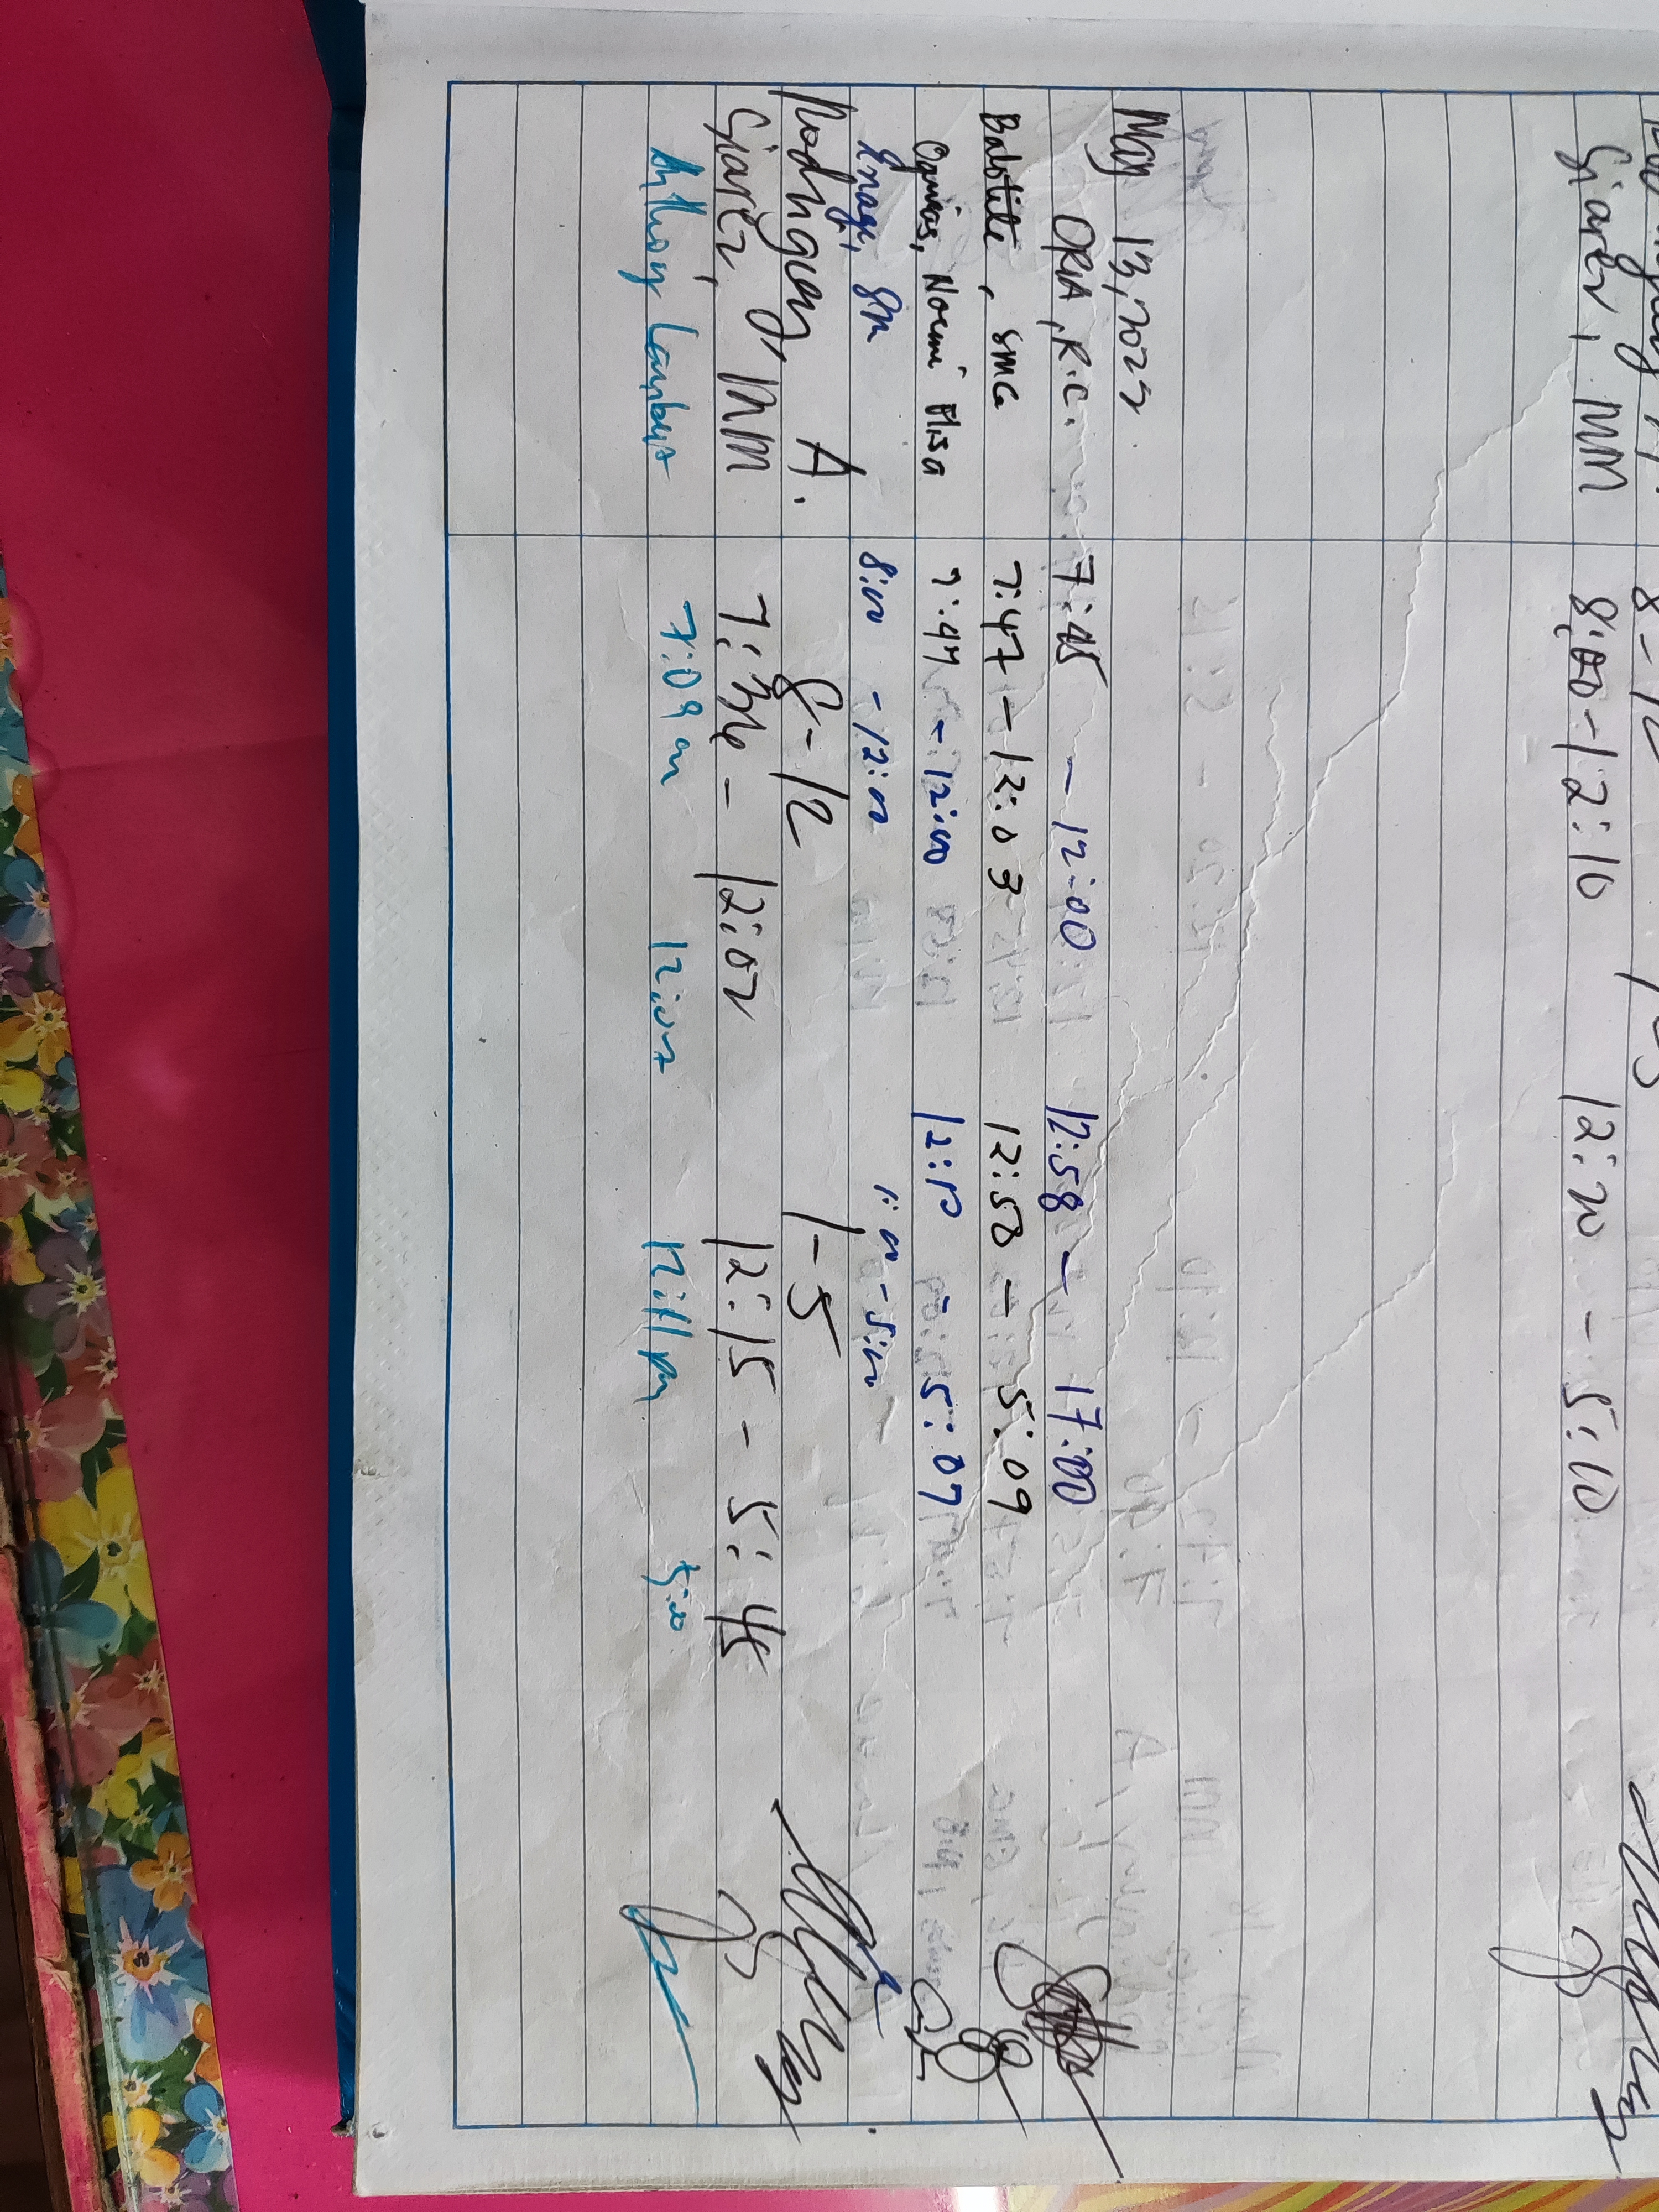 8-12 1-5
Giarez, MM 8:00-12:10 12:20 - 5:10
May 13, 2025
ORIA, R.C. 7:45 - 12:00 12:58 - 17:00
Babotite, SMG 7:47 - 12:03 12:58 - 5:09
Noemi 7:44 - 12:00 12:10 5:07
8:00 - 12:00 1:00 - 5:00
A. 8-12 1-5
Giarez, MM 7:36 - 12:02 12:15 - 5:45
Anthony 7:09 am 12:07 12:11 pm 5:00